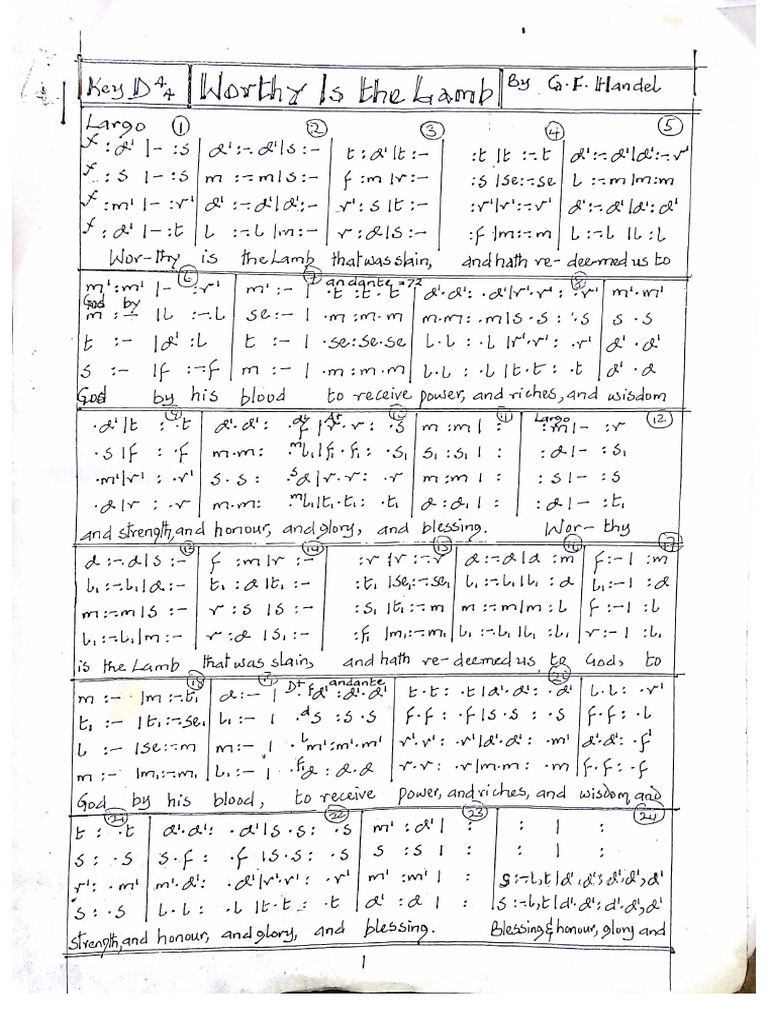 Key D 4/4 Worthy Is the Lamb By G.F. Handel
Largo 1 2 3 4 5
f : d' | - : s | d' :-. d' | s :- | t : d' | t :- | : t | t :-. t | d' :-. d' | d' :-. r'
f : s | - : s | m :-. m | s :- | f : m | r :- | : s | se :-. se | l :-. m | m : m
f : m' | - : r' | d' :-. d' | d' :- | r' : s | t :- | : r' | r' :-. r' | d' :-. d' | d' : d'
f : d' | - : t | l :-. l | m :- | r : d | s :- | : f | m :-. m | l :-. l | l : l
Wor-thy is the Lamb that was slain, and hath re-deemed us to
6 7 andante = 72 8
m' : m' | - : r' | m' :- | . t : t . t | d' . d' : . d' | r' . r' : . r' | m' . m'
God by
m :- | l :-. l | se :- | . m : m . m | m . m : . m | s . s : . s | s . s
t :- | d' : l | t :- | . se : se . se | l . l : . l | r' . r' : . r' | d' . d'
s :- | f :-. f | m :- | . m : m . m | l . l : . l | t . t : . t | d' . d
God by his blood to receive power, and riches, and wisdom
9 10 11 Largo 12
. d' | t : . t | d' . d' : . f | r . r : . s | m : m | : | : m | - : r
. s | f : . f | m . m : m l₁ | f₁ . f₁ : . s₁ | s₁ : s₁ | : | : d | - : s₁
. m' | r' : . r' | s . s : s d | r . r : . r | m : m | : | : s | - : s
. d | r : . r | m . m : m l₁ | t₁ . t₁ : . t₁ | d : d₁ | : | : d | - : t₁
and strength, and honour, and glory, and blessing. Wor-thy
13 14 15 16 17
d :-. d | s :- | f : m | r :- | : r | r :-. r | d :-. d | d : m | f :- | : m
l₁ :-. l₁ | d :- | t₁ : d | t₁ :- | : t₁ | se₁ :-. se₁ | l₁ :-. l₁ | l₁ : d | l₁ :- | : d
m :-. m | s :- | r : s | s :- | : s₁ | t₁ :-. m | m :-. m | m : l | f :- | : l
l₁ :-. l₁ | m :- | r : d | s₁ :- | : f₁ | m₁ :-. m₁ | l₁ :-. l₁ | l₁ : l₁ | r :- | : l₁
is the Lamb that was slain, and hath re-deemed us, to God, to
18 19 D+ andante 20
m :- | m :-. t₁ | d :- | . f d' : d' . d' | t . t : . t | d' . d' : . d' | l . l : . r'
t₁ :- | t₁ :-. se₁ | l₁ :- | . d s : s . s | f . f : . f | s . s : . s | f . f : . l
l :- | se :-. m | m :- | . l m' : m' . m' | r' . r' : . r' | d' . d' : . m' | d' . d' : . f'
m :- | m₁ :-. m₁ | l₁ :- | . f₁ d : d . d | r . r : . r | m . m : . m | f . f : . f
God by his blood, to receive power, and riches, and wisdom and
21 22 23 24
t : . t | d' . d' : . d' | s . s : . s | m' : d' | : | : | :
s : . s | s . f : . f | s . s : . s | s : s | : | : | :
r' : . m' | m' . d' : . d' | r' . r' : . r' | m' : m' | : | s :-. l, t | d' . d' : d' . d', d'
s : . s | l . l : . l | t . t : . t | d' : d | : | s :-. l, t | d' . d' : d' . d', d'
strength, and honour, and glory, and blessing. Blessing & honour, glory and
1